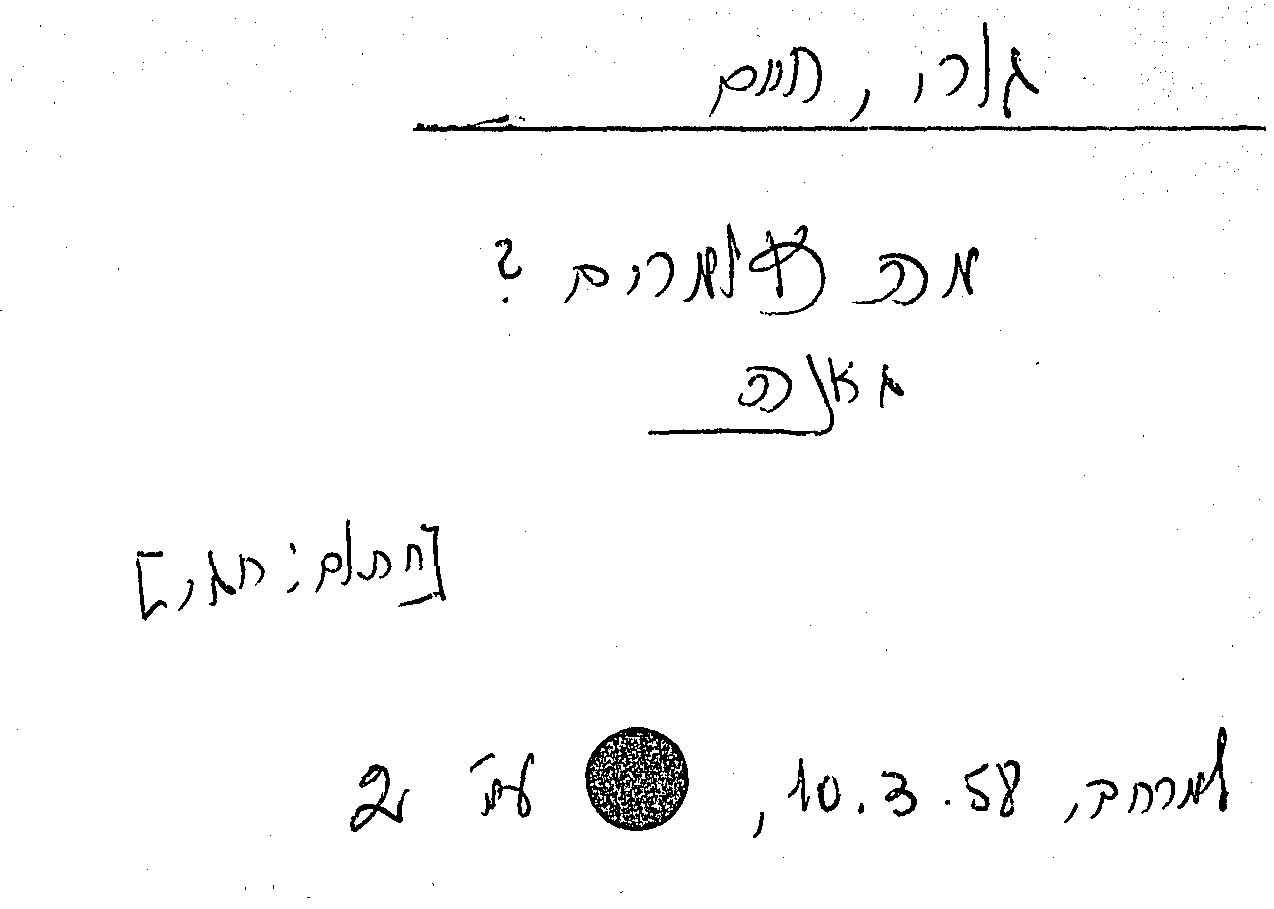 גורי, חיים
מה אומרים ?
[חתום: חגי]
למרחב, 10.3.58, עמ' 2